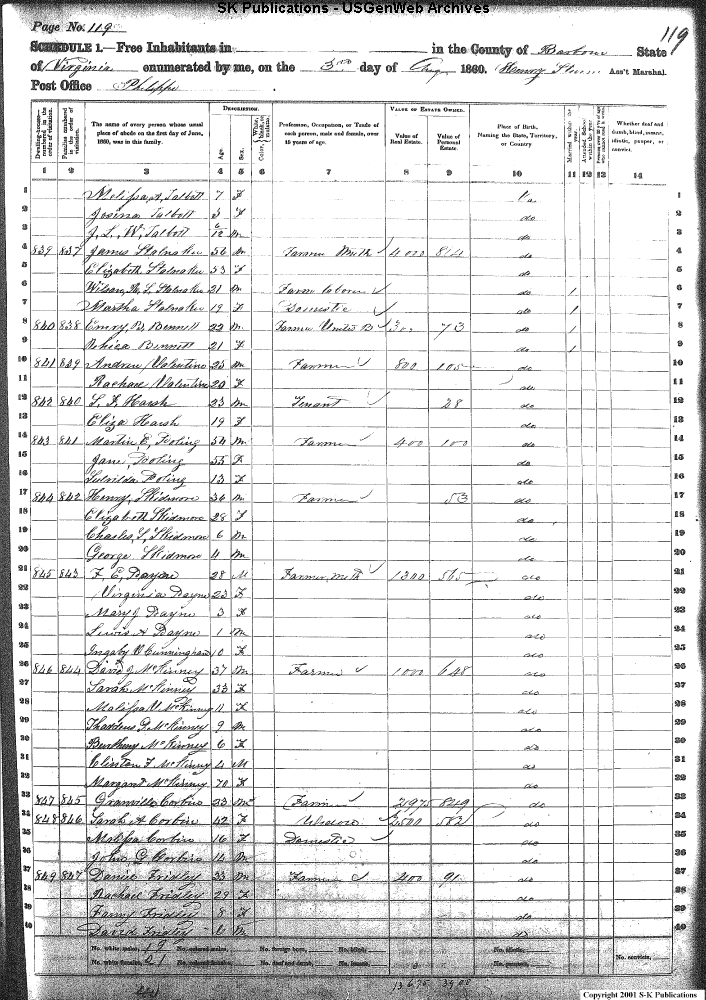 SK Publications - USGenWeb Archives
Page No. 119
119
SCHEDULE 1.—Free Inhabitants in in the County of Barbour State
of Virginia enumerated by me, on the 3rd day of Aug 1860. Henry Sturm Ass't Marshal.
Post Office Philippi
Dwelling-house—numbered in the order of visitation.
Families numbered in the order of visitation.
The name of every person whose usual place of abode on the first day of June, 1860, was in this family.
DESCRIPTION.
Age.
Sex.
Color, White, black, or mulatto.
Profession, Occupation, or Trade of each person, male and female, over 15 years of age.
VALUE OF ESTATE OWNED.
Value of Real Estate.
Value of Personal Estate.
Place of Birth, Naming the State, Territory, or Country.
Married within the year.
Attended School within the year.
Whether deaf and dumb, blind, insane, idiotic, pauper, or convict.
1 2 3 4 5 6 7 8 9 10 11 12 13 14
1 Talbott 7 F Va 1
2 Talbott 3 F do 2
3 J. L. W. Talbott 6/12 M do 3
4 839 837 James Stalnaker 56 M Farmer Meth 4000 814 do 4
5 Elizabeth Stalnaker 53 F do 5
6 Stalnaker 21 M Farm laborer do 1 6
7 Martha Stalnaker 19 F Domestic do 1 7
8 840 838 Emry B Bennett 22 M Farmer United B 300 73 do 1 8
9 Bennett 21 F do 1 9
10 841 839 Andrew Valentine 25 M Farmer 800 105 do 10
11 Rachael Valentine 20 F do 11
12 842 840 Harsh 23 M Tenant 28 do 12
13 Eliza Harsh 19 F do 13
14 843 841 Martin E, Poling 54 M Farmer 400 100 do 14
15 Jane, Poling 55 F do 15
16 Poling 13 F do 16
17 844 842 Henry Skidmore 36 M Farmer 53 do 17
18 Elizabeth Skidmore 28 F do 18
19 Charles, Skidmore 6 M do 19
20 George Skidmore 4 M do 20
21 845 843 F, E, Payne 28 M Farmer, Meth 1300 565 do 21
22 Virginia Payne 23 F do 22
23 Mary J Payne 3 F do 23
24 Lewis A Payne 1 M do 24
25 Cunningham 10 F do 25
26 846 844 David J McKinney 37 M Farmer 1000 648 do 26
27 Sarah McKinney 33 F do 27
28 Malissa V McKinney 11 F do 28
29 McKinney 9 M do 29
30 McKinney 6 F do 30
31 Clinton F McKinney 4 M do 31
32 Margaret McKinney 70 F do 32
33 847 845 Granville Corbin 23 M Farmer 2975 829 do 33
34 848 846 Sarah A Corbin 42 F Widow 2500 582 do 34
35 Malissa Corbin 16 F Domestic do 35
36 John G Corbin 14 M do 36
37 849 847 Daniel Fridley 33 M Farmer 400 91 do 37
38 Rachael Fridley 29 F do 38
39 Fanny Fridley 8 F do 39
40 David Fridley 6 M do 40
No. white males, 19 No. colored males, No. foreign born, No. blind, No. idiotic,
No. white females, 21 No. colored females, No. deaf and dumb, No. insane, No. paupers, No. convicts,
13675 3900
Copyright 2001 S-K Publications